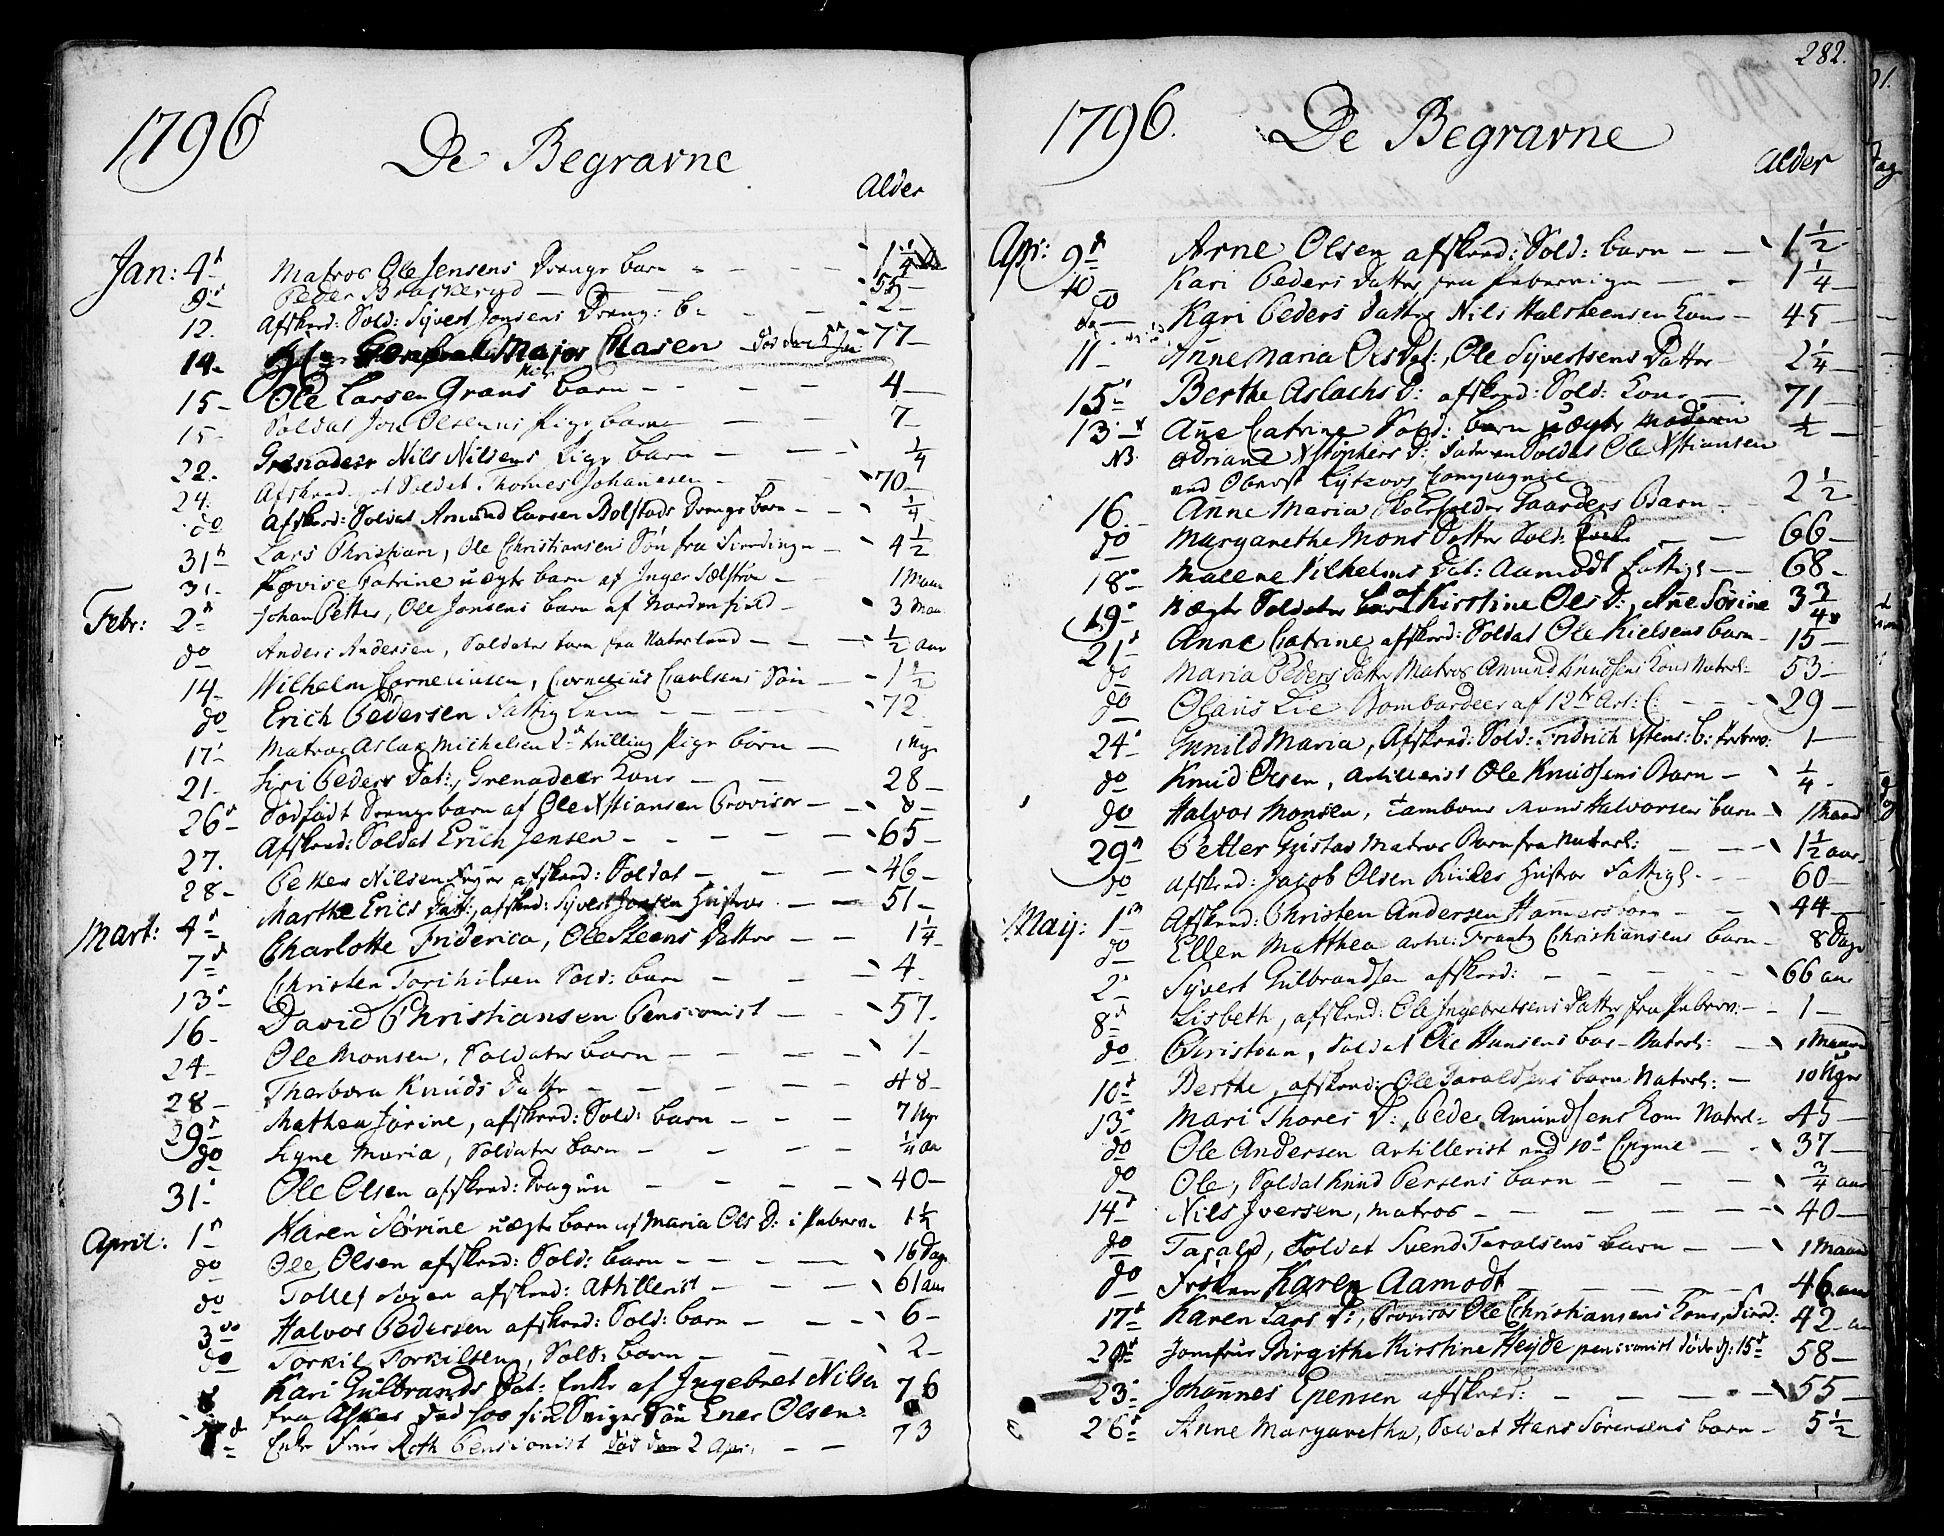 1796
De Begravne
Alder
Jan: 4 Matros Ole Jensens Drenge barn 1 1/4
9 Peder 55
12. Afskeed: Sold: Syvert Jonsens Dreng: b: 2
14 General Major Clasen Död den 5 Jan 77
15 Ole Larsen Grans barn 4
15 Soldat Jon Olsens Pige barn 7
22 Grenadeer Nils Nilsens Pige barn 1/4
24 Soldat Thomes Johannesen 70
do Afskeed: Soldat Amund Larsen Bolstads Drenge barn 1/4
31 Lars Christian, Ole Christiansens Sön fra 4 1/2
31 Catrine uægte barn af Inger 1 Maan
Febr: 2 Johan Petter, Ole Jonsens barn af 3 Maan
do Anders Andersen, Soldater barn fra Naterland 1/2 aar
14 Wilhelm Corneliusen, Cornelius Carlsens Sön 1 1/2
do Erich Pedersen Fattig Lem 72
17 Matros Aslak Michelsen tvilling Pige barn 1 Uge
21 Siri Peders Dat:, Grenadeer Kone 28
26 Dödfödt Drengebarn af Ole Xstiansen Provisor 0
27. Afskeed: Soldat Erich Jensen 65
28 Petter Nilsen afskeed: Soldat 46
Mart: 4 Marthe Erics Datt: afskeed: Syvert Jonsen Hustroe 51
7 Charlotte Friderica, Ole Steens Datter 1 1/4
13 Christen Torkilsen Sold: barn 4
16 David Christiansen Pensionist 57
24 Ole Monsen, Soldater barn 1
28 Thorborn Knuds Datter 48
29 Mathea Jörine, afskeed: Sold: barn 7 Uger
do Signe Maria, Soldater barn 1/4 aar
31 Ole Olsen afskeed: Dragun 40
April: 1 Karen Sörine uægte barn af Maria Ols D: i Peberv. 1 1/2
do Ole Olsen afskeed: Sold: barn 16 Dage
do Tollef afskeed: Artillerist 61 aar
3 Halvor Pedersen afskeed: Sold: barn 6
do Torkil Torkilsen, Sold: barn 2
Kari Gulbrands Dat: Enke af Ingebret Nilsen 76
fra Asker Död hos sin Sviger Sön Ener Olsen
7 Enke Frue Roth Pensionist död den 2 Apr. 73
282.
1796.
De Begravne
Alder
Apr: 9 Arne Olsen afskeed: Sold: barn 1 1/2
10 Kari Peders Datter fra Pebervigen 1 1/4
do Kari Peders Datter Nils Halsteensen Kone 45
11 Anne Maria Ols Dat:, Ole Syvertsens Datter 2 1/4
15 Berthe Aslachs D: afskeed: Sold: Kone 71
13 Anne Catrine Sold: barn uægte Moderen 1/2
NB Adriane Xstophers D: Faderen Soldat Ole Xstiansen
ved Oberst Lytzovs Compagnie
16. Anne Maria Gaarders Barn 2 1/2
do Margarethe Mons Datter Sold: Enke 66
18 Malene Vilhelms Dat: Aamodt Fattigl 68
19 Uægte Soldater barn af Kirstine Ols D:, Anne Sörine 3 3/4
21 Anne Catrine afskeed: Soldat Ole Kielsens barn 15
do Maria Peders Datter Matros Amund Knudsens Kone Naterl: 53
do Olaus Lie Bombardeer af 12te Art: C: 29
24 Gunild Maria, Afskeed: Sold: Fridrich Xstens: b: Peberv: 1
do Knud Olsen, Artillerist Ole Knudsens Barn 1/4
do Halvor Monsen, Tambour Mons Halvorsens barn 1 Maaned
29 Petter Gustav Matros Barn fra Naterl: 1 1/2 aar
do Afskeed: Jacob Olsen Hustroe Fattigl 60
Maij: 1 Afskeed: Christen Andersen Hammersborg 44
do Ellen Matthea Artil: Frantz Christiansens barn 8 Dage
2 Syvert Gulbrandsen afskeed: 66 aar
8 Lisbeth, afskeed: Ole Ingebretsens Datter fra Peberv: 1
do Christian, Soldat Ole Hansens bar- Naterl: 1 Maaned
10 Berthe, afskeed: Ole Taraldsens barn Naterl: 10 Uger
13 Mari Thores D:, Peder Amundsens Kone Naterl: 45
do Ole Andersen Artillerist ved 10 Cpgnie 37
do Ole, Soldat Knud Persens barn 3/4 aar
14 Nils Iversen, Matros 40
do Tarald, Soldat Svend Taralsens barn 1 Maaned
do Fröken Karen Aamodt 46 aar
17 Karen Lars D:, Provisor Ole Christiansens Kone, 42 aar
20 Jomfrue Birgithe Kirstine Heyde pensionist döde d: 15 58
23 Johannes Epensen afskeed: 55
26 Anne Margaretha, Soldat Hans Sörensens barn 5 1/2